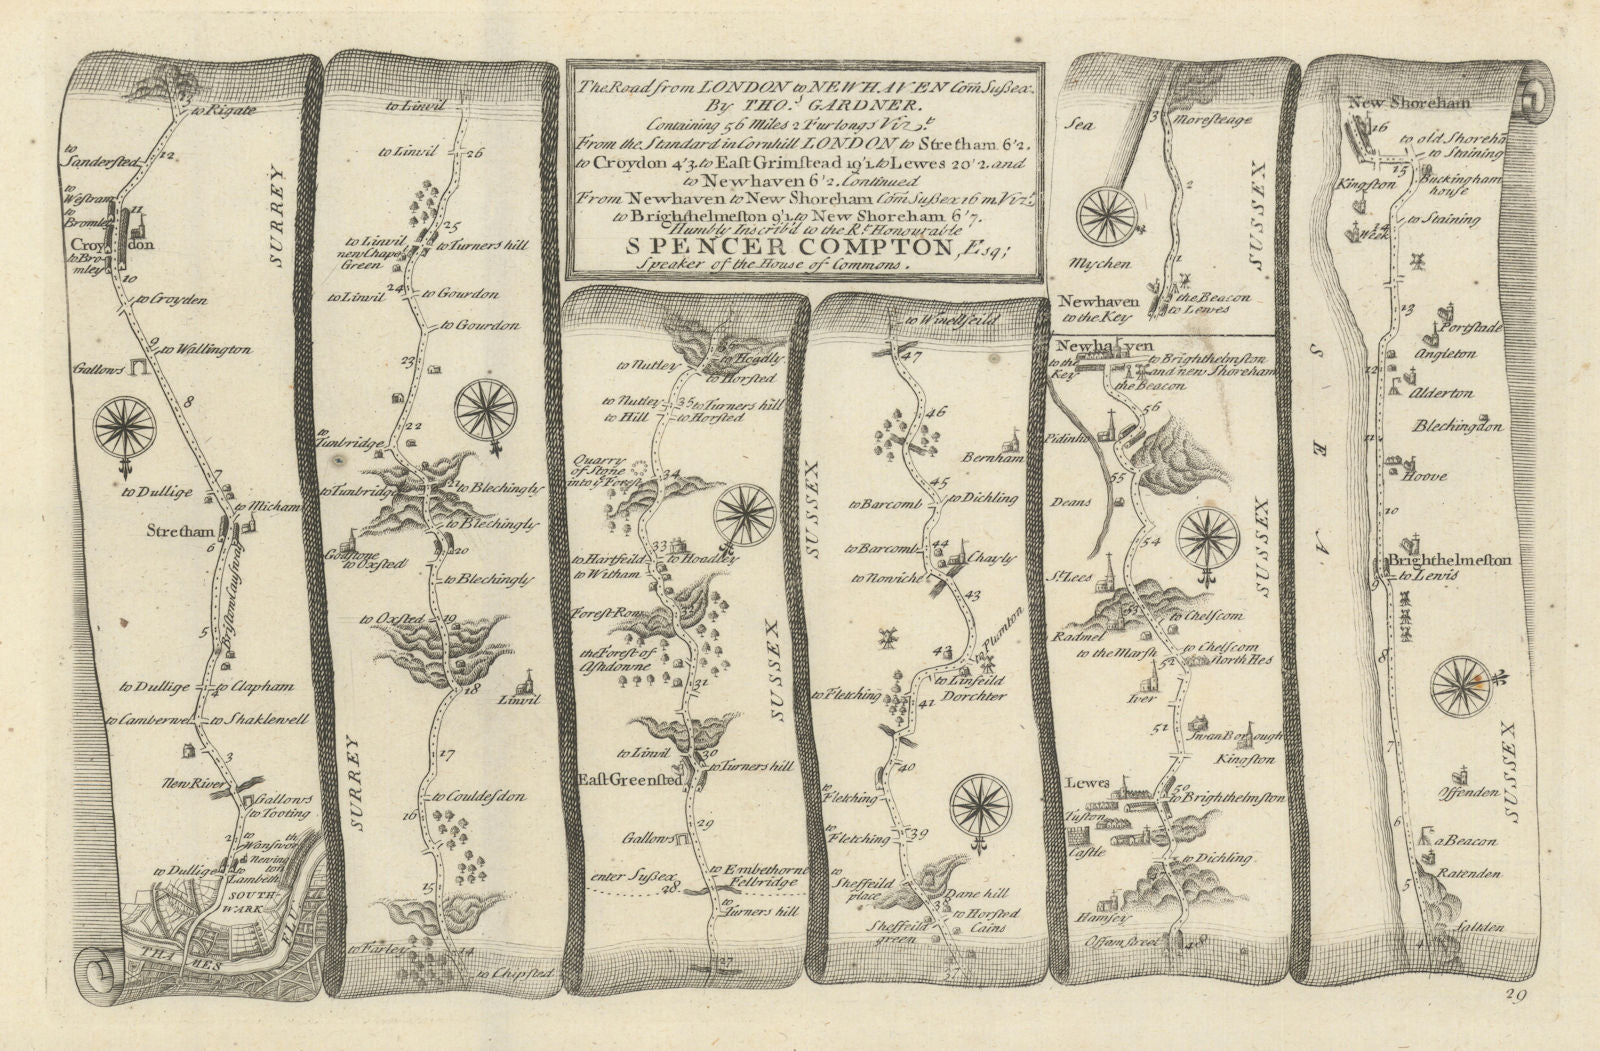 The Road from LONDON to NEWHAVEN Com Sußex.
By THO.s GARDNER.
Containing 56 Miles 2 Furlongs Viz.t
From the Standard in Cornhill LONDON to Stretham 6'2.
to Croydon 4'3. to East Grimstead 19'1. to Lewes 20'2. and
to Newhaven 6'2. Continued
From Newhaven to New Shoreham Com Sußex 16 m. Viz.t
to Brighthelmeston 9'1. to New Shoreham 6'7.
Humbly Inscrib'd to the R.t Honourable
SPENCER COMPTON, Esq;
Speaker of the House of Commons.
to Rigate
to
Sandersted
12
to
Westram
to
Bromley
11
Croydon
to Bro-
mley
10
to Croyden
9
to Wallington
Gallows
8
7
to Dullige
to Micham
Stretham
6
Bristow Causway
5
to Dullige
4
to Clapham
to Camberwel
to Shaklewell
3
New River
Gallows
to Tooting
2
to
Wansworth
to Dullige
to
Lambeth
newing
ton
SOUTH
WARK
THAMES
FLU
SURREY
to Linvil
to Linvil
26
25
to Linvil
new Chapel
Green
to Turners hill
24
to Linvil
to Gourdon
to Gourdon
23
22
to
Tunbridge
to Tunbridge
21
to Blechingly
to Blechingly
Godstone
to Oxsted
20
to Blechingly
to Oxsted
19
18
Linvil
17
SURREY
to Couldesdon
16
15
to Farley
14
to Chipsted
36
to Hoadly
to Nutley
to Horsted
to Nutley
35
to Turners hill
to Hill
to Horsted
Quarry
of Stone
into y.e Forest
34
33
to Hartfeild
to Hoadley
to Witham
Forest-Row
the Forest of
Ashdowne
31
SUSSEX
to Linvil
30
to Turners hill
East Greensted
29
Gallows
to Embethorne
enter Sußex
28
Felbridge
to
Turners hill
27
to Winellfeild
47
46
Bernham
45
to Dichling
to Barcomb
SUSSEX
to Barcomb
44
Chayly
to Noviche
43
to Plumton
43
42
to Linfeild
to Fletching
Dorchter
41
40
to
Fletching
to
Fletching
39
to
Sheffeild
place
Dane hill
38
to Horsted
Cains
Sheffeild
green
37
Sea
3
Moresteage
2
SUSSEX
Mychen
1
Newhaven
to the Key
the Beacon
to Lewes
Newhaven
to the
Key
to Brighthelmston
and new Shoreham
the Beacon
56
Pidinho
55
Deans
54
SUSSEX
St. Lees
53
to Chelscom
Radmel
to the Marsh
52
to Chelscom
North Hes
Iver
51
Swan Borough
Kingston
Lewes
50
to Brighthelmston
Tuston
Castle
to Dichling
Hamsey
Offam street
48
New Shoreham
16
to old Shoreham
to Staining
15
Kingston
Buckingham
house
to Staining
14
Week
13
Portslade
Angleton
12
Alderton
Blechingdon
11
Hoove
SEA
10
Brighthelmeston
9
to Lewis
8
7
Offenden
SUSSEX
6
a Beacon
Ratenden
5
Saltden
4
29